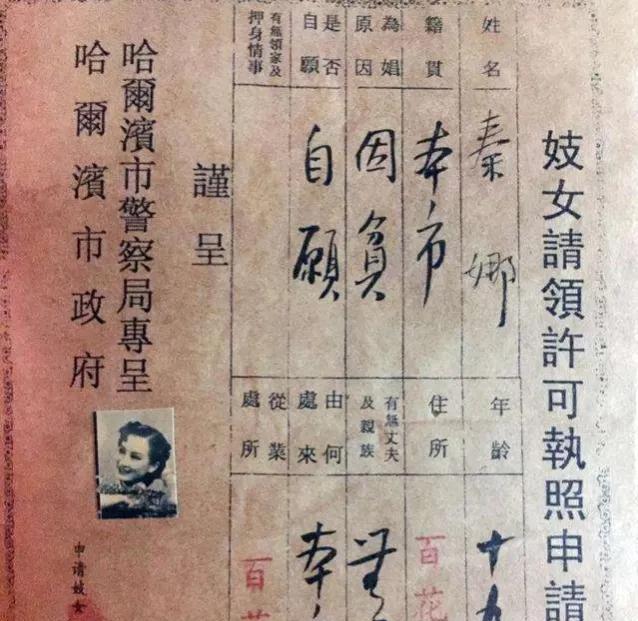 妓女請領許可執照申請
姓名
秦娜
年齡
十九
籍貫
本市
住所
百花
為娼原因
因貧
有無丈夫及親族
無
是否自願
自願
由何處來
本
有無領家及押身情事
從業處所
百花
謹呈
哈爾濱市警察局專呈
哈爾濱市政府
申请妓女